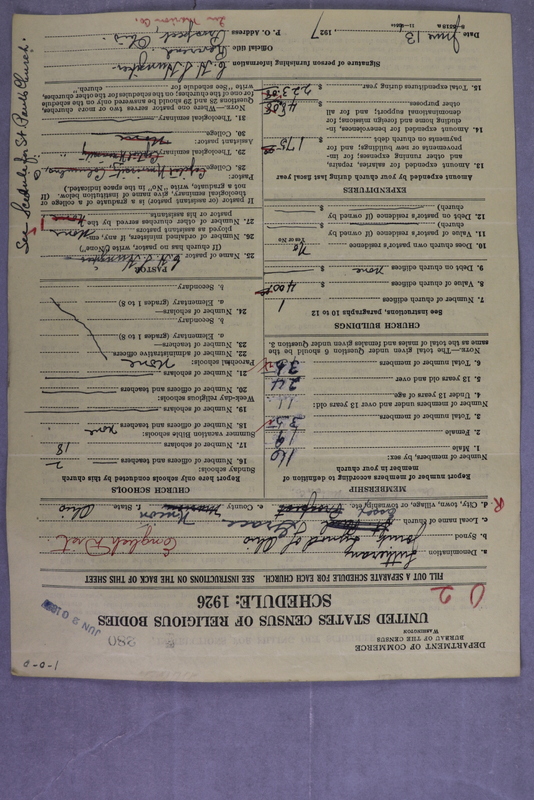 1-0-0
DEPARTMENT OF COMMERCE
BUREAU OF THE CENSUS
WASHINGTON
280
UNITED STATES CENSUS OF RELIGIOUS BODIES
JUN 20 1927
SCHEDULE: 1926
FILL OUT A SEPARATE SCHEDULE FOR EACH CHURCH. SEE INSTRUCTIONS ON THE BACK OF THIS SHEET
a. Denomination Lutheran
b. Synod Joint Synod of Ohio English Dist.
c. Local name of church St Paul Grace
d. City, town, village, or township, etc. Prospect e. County Marion Union f. State Ohio
MEMBERSHIP
Report number of members according to definition of member in your church
Number of members, by sex:
1. Male 16
2. Female 19
3. Total number of members 35
Number of members under and over 13 years old:
4. Under 13 years of age 11
5. 13 years old and over 24
6. Total number of members 35
NOTE.—The total given under question 6 should be the same as the total of males and females given under question 3.
CHURCH BUILDINGS
See instructions, paragraphs 10 to 12
7. Number of church edifices 1
8. Value of church edifices $
9. Debt on church edifices $ none
10. Does church own pastor's residence No
Yes or No
11. Value of pastor's residence (if owned by church) $
12. Debt on pastor's residence (if owned by church) $
EXPENDITURES
Amount expended by your church during last fiscal year
13. Amount expended for salaries, repairs, and other running expenses; for improvements or new building; and for payments on church debt $ 175
14. Amount expended for benevolences, including home and foreign missions; for denominational support; and for all other purposes $ 48.08
15. Total expenditures during year $ 223.08
CHURCH SCHOOLS
Report here only schools conducted by this church
Sunday schools:
16. Number of officers and teachers 2
17. Number of scholars 18
Summer vacation Bible schools:
18. Number of officers and teachers none
19. Number of scholars
Week-day religious schools:
20. Number of officers and teachers
21. Number of scholars
Parochial schools: None
22. Number of administrative officers
23. Number of teachers—
a. Elementary (grades 1 to 8)
b. Secondary
24. Number of scholars—
a. Elementary (grades 1 to 8)
b. Secondary
PASTOR
25. Name of pastor
(If church has no pastor, write "None")
26. Number of ordained ministers, if any, employed as assistant pastors None
27. Number of other churches served by the pastor or his assistants 1
If pastor (or assistant pastor) is a graduate of a college or theological seminary, give name of institution below. (If not a graduate, write "No" in the space indicated.)
Pastor:
28. College Capital University, Columbus, O.
29. Theological seminary
Assistant pastor:
30. College None
31. Theological seminary
NOTE.—Where one pastor serves two or more churches, Questions 28 and 29 should be answered only on the schedule for one of the churches; on the schedules for the other churches, write "See schedule for church."
See Schedule for St Paul's Church.
Signature of person furnishing information
Official title Reverend
P. O. Address Prospect, Ohio
In Marion Co.
Date June 13 , 1927